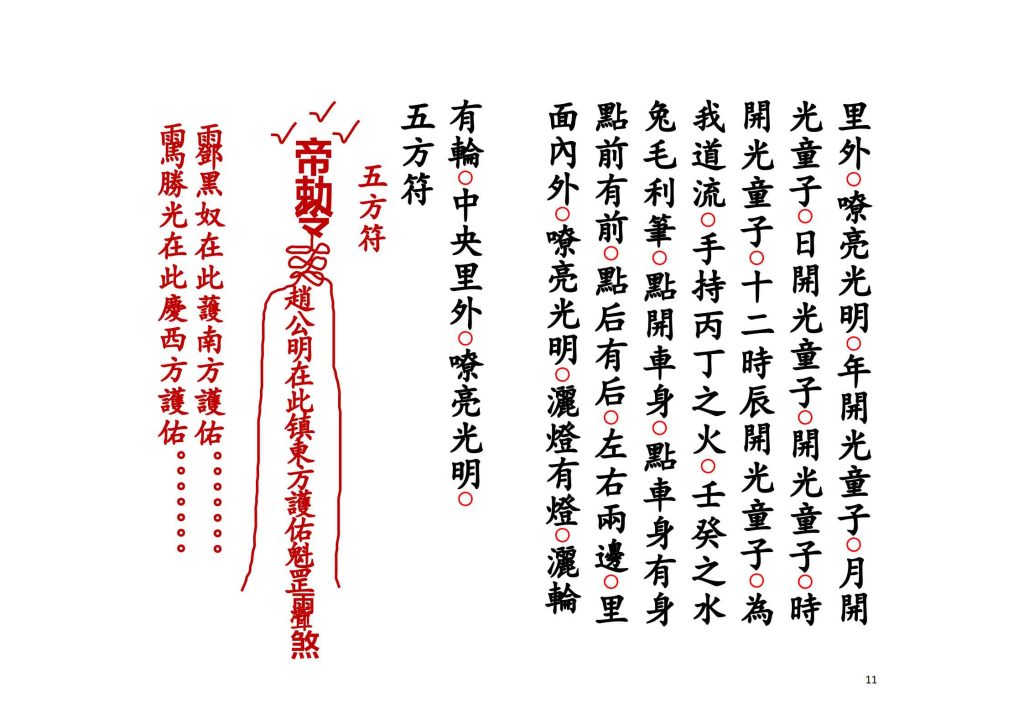 里外○嘹亮光明○年開光童子○月開
光童子○日開光童子○開光童子○時
開光童子○十二時辰開光童子○為
我道流○手持丙丁之火○壬癸之水
兔毛利筆○點開車身○點車身有身
點前有前○點后有后○左右兩邊○里
面內外○嘹亮光明○灑燈有燈○灑輪
有輪○中央里外○嘹亮光明○
五方符
五方符
帝勅令
趙公明在此镇東方護佑魁罡
煞
黑奴在此護南方護佑。。。。。。
勝光在此慶西方護佑。。。。。。
11